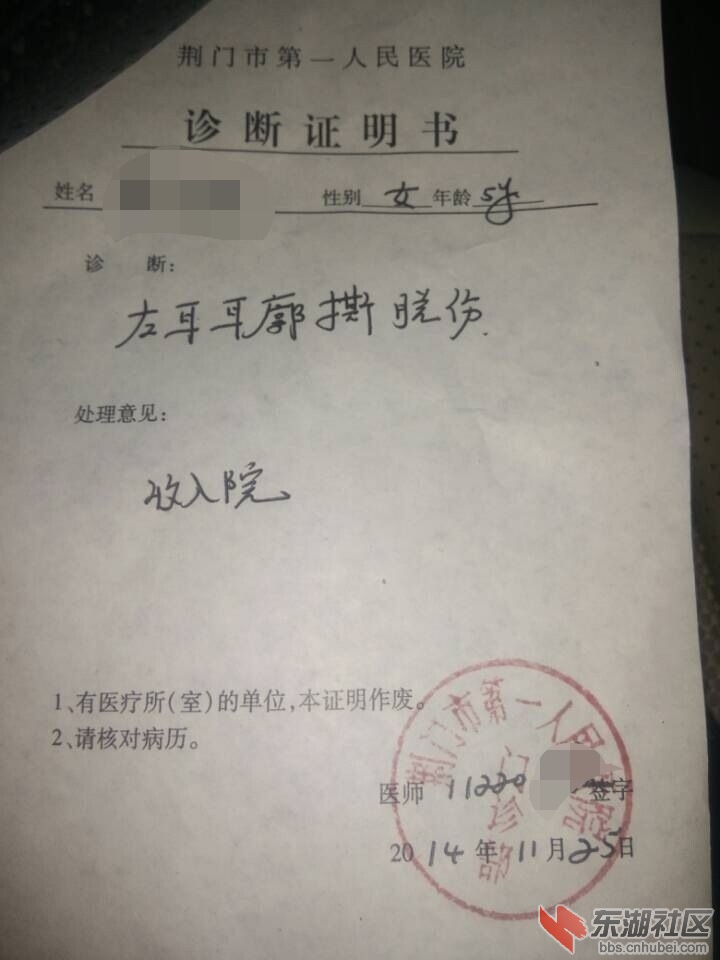 荆门市第一人民医院
诊断证明书
姓名 性别 女 年龄 5岁
诊 断:
左耳耳廓撕脱伤
处理意见:
收入院
1、有医疗所(室)的单位,本证明作废。
2、请核对病历。
荆门市第一人民医院
门诊部
医师 11220 签字
2014年11月25日
东湖社区
bbs.cnhubei.com